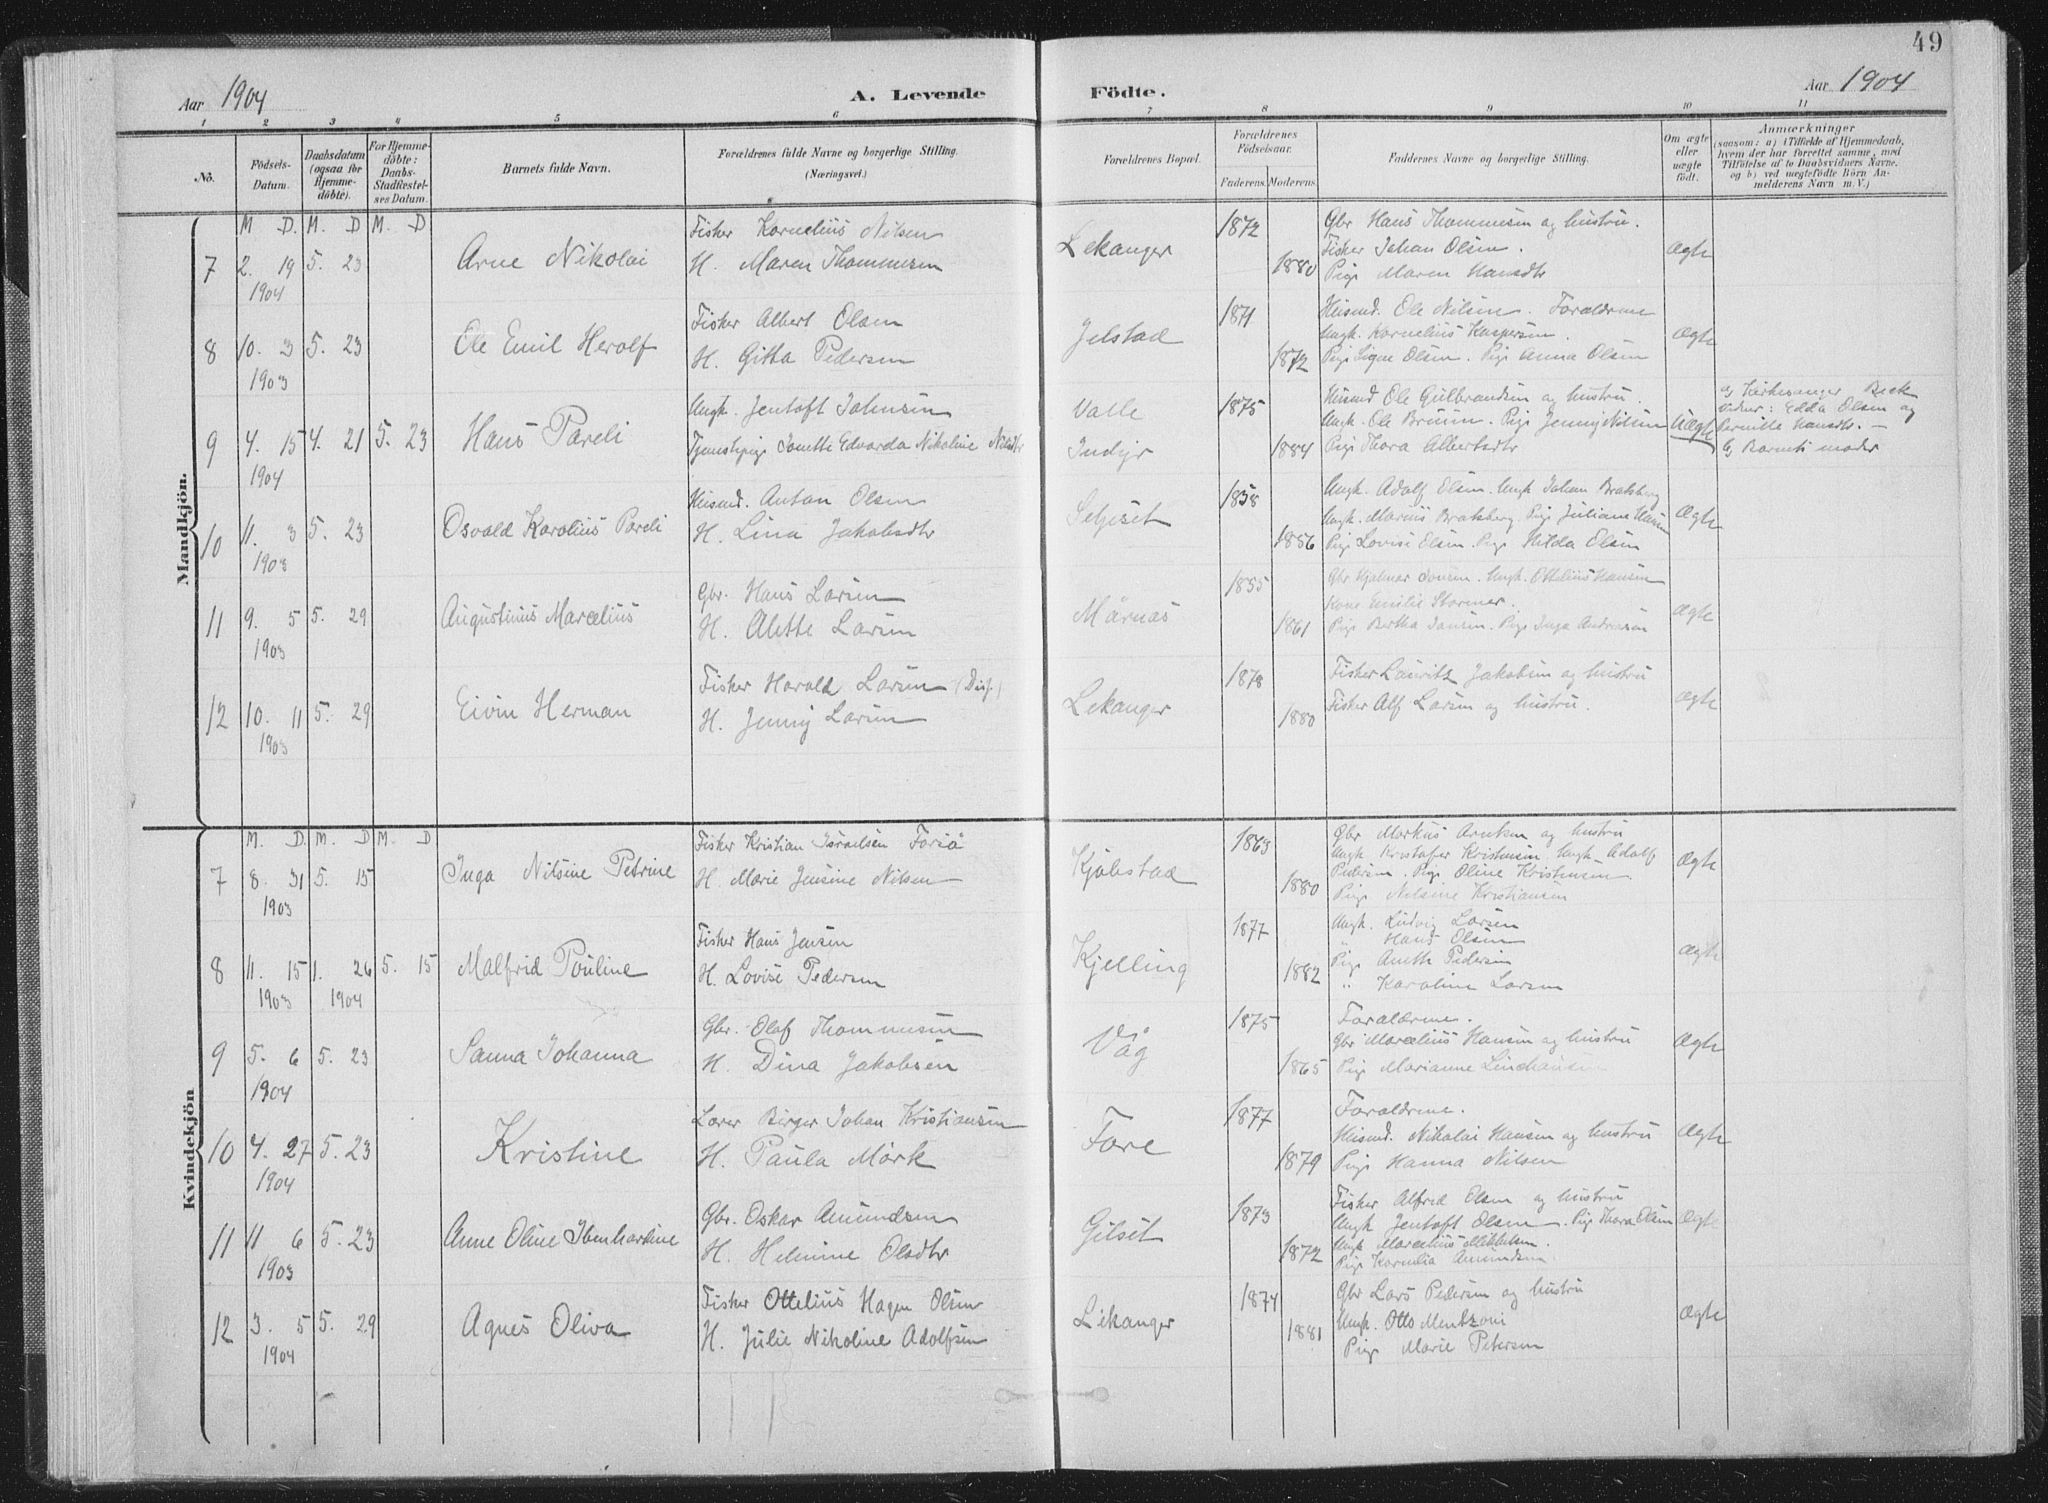 49
Aar 1904 A. Levende Födte. Aar 1904
1 2 3 4 5 6 7 8 9 10 11
No. Födsels-Datum. Daabsdatum (ogsaa for Hjemmedöbte). For Hjemmedöbte: Daabs-Stadfæstelses Datum. Barnets fulde Navn. Forældrenes fulde Navne og borgerlige Stilling. (Næringsvei.) Forældrenes Bopæl. Forældrenes Födselsaar. Faderens. Moderens. Faddernes Navne og borgerlige Stilling. Om ægte eller uægte födt. Anmærkninger (saasom: a) i Tilfælde af Hjemmedaab, hvem der har forrettet samme, med Tilföielse af to Daabsvidners Navne, og b) ved uægtefödte Börn Anmelderens Navn m. V.)
Mandkjön.
M. D. M. D. M. D.
Fisker Kornelius Nilsen 1872 Gbr Hans Thommesen og hustru.
7 2. 19 5. 23 Arne Nikolai H. Maren Thommesen Lekanger 1880 Fisker Johan Olsen. Ægte
1904 Pige Maren Hansdtr
Fisker Albert Olsen 1871 Husmd. Ole Nilsen. Forældrene
8 10. 3 5. 23 Ole Emil Herolf H. Gitta Pedersen Jelstad 1872 Ungk. Kornelius Kaspersen. Ægte
1903 Pige Signe Olsen. Pige Anna Olsen
Ungk. Jentoft Johnsen Valle 1875 Husmd Ole Gulbrandsen og hustru. a) Kirkesanger Beck
9 4. 15 4. 21 5. 23 Hans Pareli Tjenstepige Jonette Edvarda Nikoline Nilsdtr Indyr 1884 Ungk. Ole Bruun. Pige Jenny Nilsen Uægte Vidner: Edda Olsen og
1904 Pige Thora Albertsdtr Pernille Hansdtr. —
b) Barnets moder
Husmd. Anton Olsen 1858 Ungk. Adolf Olsen. Ungk Johan Bratsberg
10 11. 3 5. 23 Osvald Karolius Pareli H. Lina Jakobsdtr Selsset 1856 Ungk. Marius Bratsberg. Pige Juliane Hansen Ægte
1903 Pige Lovise Olsen. Pige Hilda Olsen
Gbr. Hans Larsen 1855 Gbr Hjalmar Jensen. Ungk. Ottelius Hansen
11 9. 5 5. 29 Augustinus Marcelius H. Alette Larsen Mårnas 1861 Kone Emilie Stormer. Ægte
1903 Pige Bertha Jansen. Pige Inga Andreasen
Fisker Harald Larsen (Diss.) 1878 Fisker Lauritz Jakobsen og hustru
12 10. 11 5. 29 Eivin Herman H. Jenny Larsen Lekanger 1880 Fisker Alf Larsen og hustru. Ægte
1903
Kvindekjön
M. D. M. D. M. D
Fisker Kristian Israelsen Forså 1863 Gbr Markus Arntsen og hustru
7 8. 31 5. 15 Inga Nilsine Petrine H. Marie Jensine Nilsen Kjölstad 1880 Ungk Kristofer Kristensen Ungk. Adolf Ægte
1903 Pedersen. Pige Oline Kristensen.
Pige Nilsine Kristiansen
Fisker Hans Jensen 1877 Ungk. Ludvig Larsen
8 11. 15 1. 26 5. 15 Malfrid Pouline H. Lovise Pedersen Kjelling 1882 " Hans Olsen Ægte
1903 1904 Pige Aneth Pedersen
" Karoline Larsen
Gbr. Olaf Thommesen 1875 Forældrene.
9 5. 6 5. 23 Sanna Johanna H. Dina Jakobsen Våg 1865 Gbr Marcelius Hansen og hustru Ægte
1904 Pige Marianne Lindhausen
Lærer Birger Johan Kristiansen 1877 Forældrene.
10 4. 27 5. 23 Kristine H. Paula Mörk Fore 1879 Husmd. Nikolai Hansen og hustru Ægte
1904 Pige Hanna Nilsen
Gbr. Oskar Amundsen 1873 Fisker Alfred Olsen og hustru
11 11 6 5. 23 Anne Oline Ibenhartine H. Helmine Olsdtr Gilset 1872 Ungk Jentoft Olsen. Pige Thora Olsen Ægte
1903 Ungk Marcelius Mikkelsen.
Pige Kornelia Amundsen
Fisker Ottelius Hagen Olsen 1874 Gbr Lars Pedersen og hustru
12 3. 5 5. 29 Agnes Oliva H. Julie Nikoline Adolfsen Lekanger 1881 Ungk. Otto Mentzoni Ægte
1904 Pige Marie Petersen